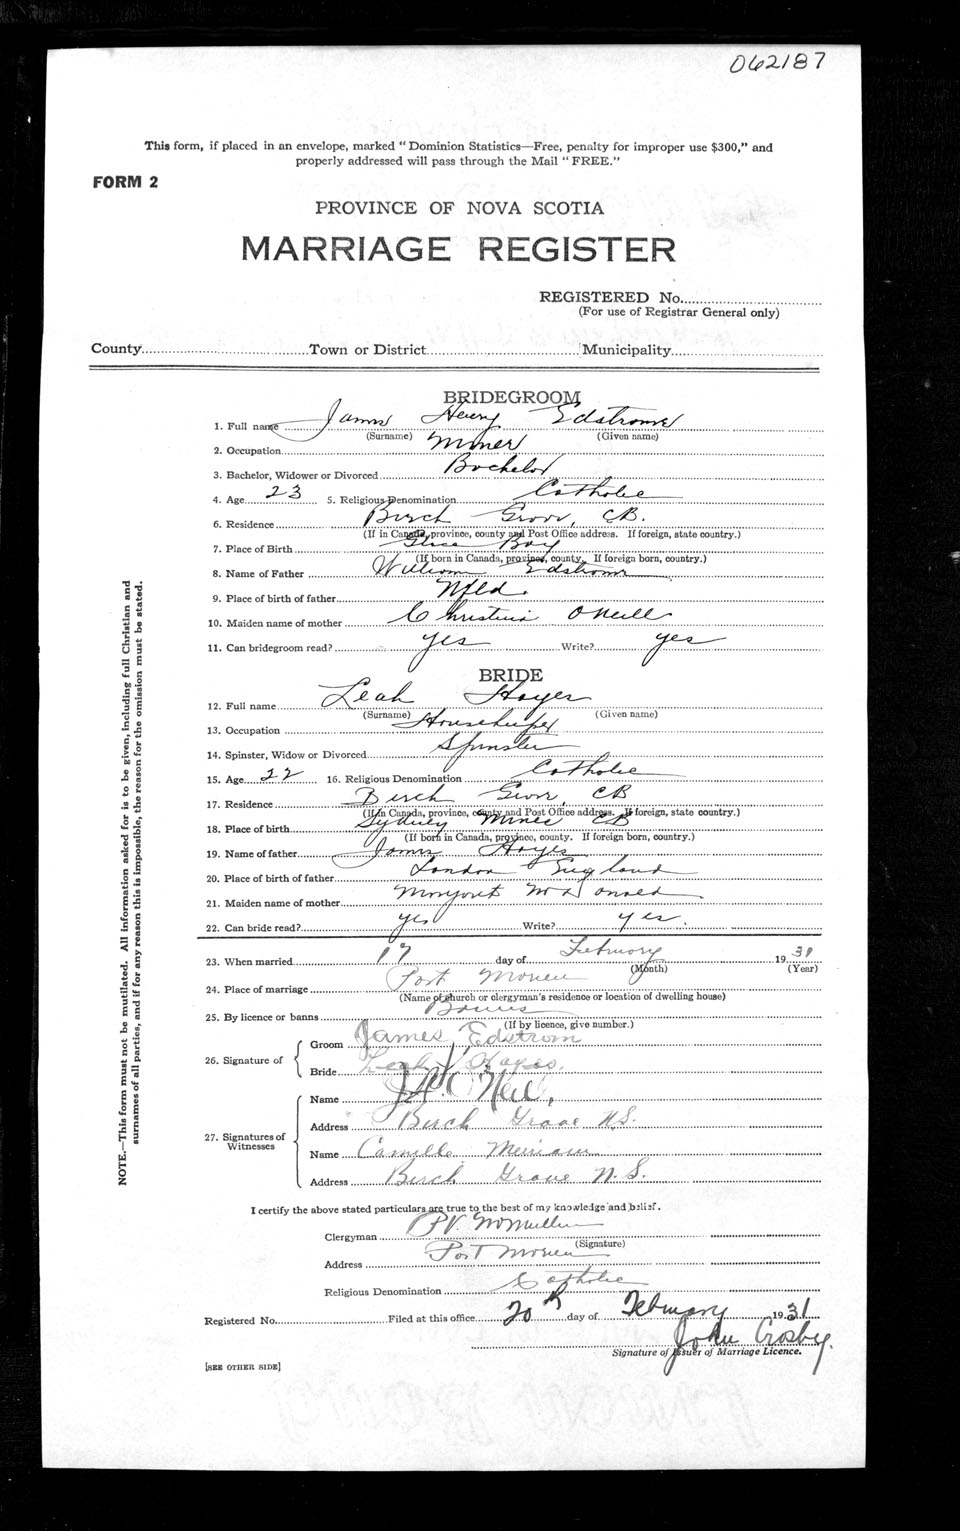 062187
This form, if placed in an envelope, marked "Dominion Statistics—Free, penalty for improper use $300," and
properly addressed will pass through the Mail "FREE."
FORM 2
PROVINCE OF NOVA SCOTIA
MARRIAGE REGISTER
REGISTERED No.
(For use of Registrar General only)
County Town or District Municipality
BRIDEGROOM
1. Full name James Henry Edstrome
(Surname) (Given name)
2. Occupation Miner
3. Bachelor, Widower or Divorced Bachelor
4. Age 23 5. Religious Denomination Catholic
6. Residence Birch Grove, CB.
(If in Canada, province, county and Post Office address. If foreign, state country.)
7. Place of Birth Glace Bay
(If born in Canada, province, county. If foreign born, country.)
8. Name of Father William Edstrome
9. Place of birth of father Nfld.
10. Maiden name of mother Christina O'Neill
11. Can bridegroom read? yes Write? yes
BRIDE
12. Full name Leah Hayes
(Surname) (Given name)
13. Occupation Housekeeper
14. Spinster, Widow or Divorced Spinster
15. Age 22 16. Religious Denomination Catholic
17. Residence Birch Grove, CB
(If in Canada, province, county and Post Office address. If foreign, state country.)
18. Place of birth Sydney Mines CB
(If born in Canada, province, county. If foreign born, country.)
19. Name of father James Hayes
20. Place of birth of father London England
21. Maiden name of mother Margaret McDonald
22. Can bride read? yes Write? yes.
23. When married 17 day of February 1931
(Month) (Year)
24. Place of marriage Port Morien
(Name of church or clergyman's residence or location of dwelling house)
25. By licence or banns Banns
(If by licence, give number.)
26. Signature of Groom James Edstrom
Bride Leah Hayes.
27. Signatures of Witnesses Name O'Neil,
Address Birch Grove N.S.
Name Camille
Address Birch Grove N.S.
I certify the above stated particulars are true to the best of my knowledge and belief.
Clergyman McMullin
(Signature)
Address Port Morien
Religious Denomination Catholic
Registered No. Filed at this office 20th day of February 1931
John Crosby.
Signature of Issuer of Marriage Licence.
[SEE OTHER SIDE]
NOTE.—This form must not be mutilated. All information asked for is to be given, including full Christian and
surnames of all parties, and if for any reason this is impossible, the reason for the omission must be stated.